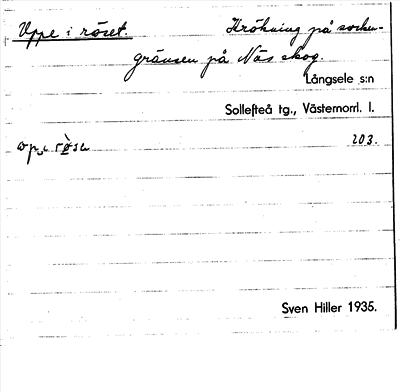 Uppe i röset. Krökning på socken-
gränsen på Näs skog.
Långsele s:n
Sollefteå tg., Västernorrl. l.
203.
Sven Hiller 1935.